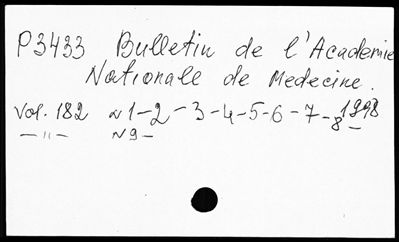 P3433 Bulletin de l'Academie
Nationale de Medecine.
Vol. 182 N 1-2-3-4-5-6-7-8 1998
—"— N9-